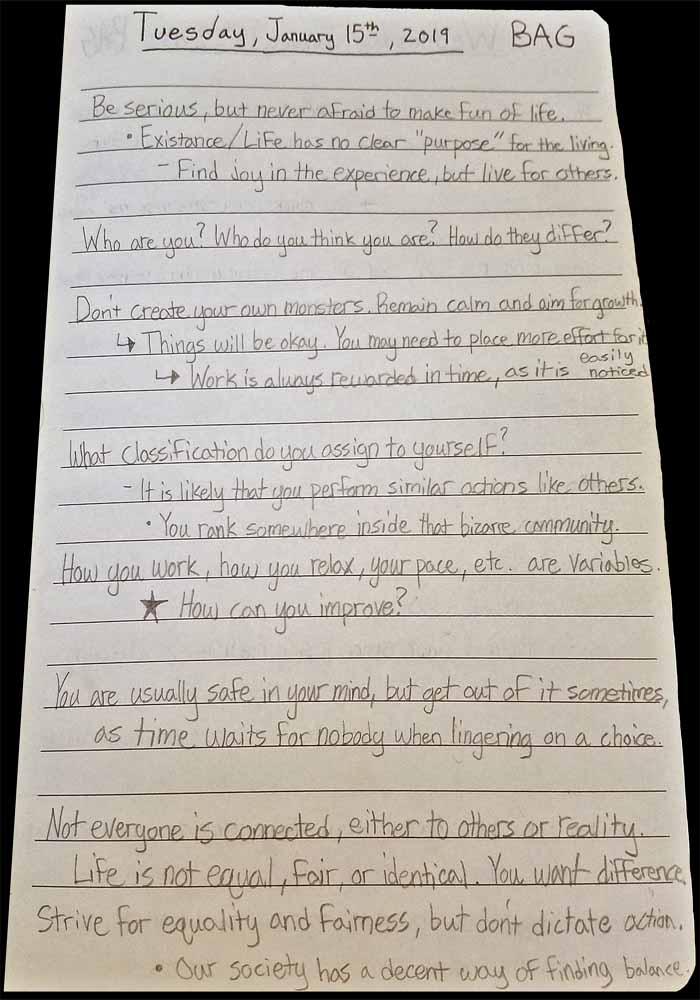 Tuesday, January 15th, 2019 BAG
Be serious, but never afraid to make fun of life.
• Existance/Life has no clear "purpose" for the living.
- Find Joy in the experience, but live for others.
Who are you? Who do you think you are? How do they differ?
Don't create your own monsters. Remain calm and aim for growth.
↳ Things will be okay. You may need to place more effort for it
↳ Work is always rewarded in time, as it is easily noticed
What classification do you assign to yourself?
- It is likely that you perform similar actions like others.
• You rank somewhere inside that bizarre community.
How you work, how you relax, your pace, etc. are variables.
★ How can you improve?
You are usually safe in your mind, but get out of it sometimes,
as time waits for nobody when lingering on a choice.
Not everyone is connected, either to others or reality.
Life is not equal, fair, or identical. You want difference.
Strive for equality and fairness, but don't dictate action.
• Our society has a decent way of finding balance.